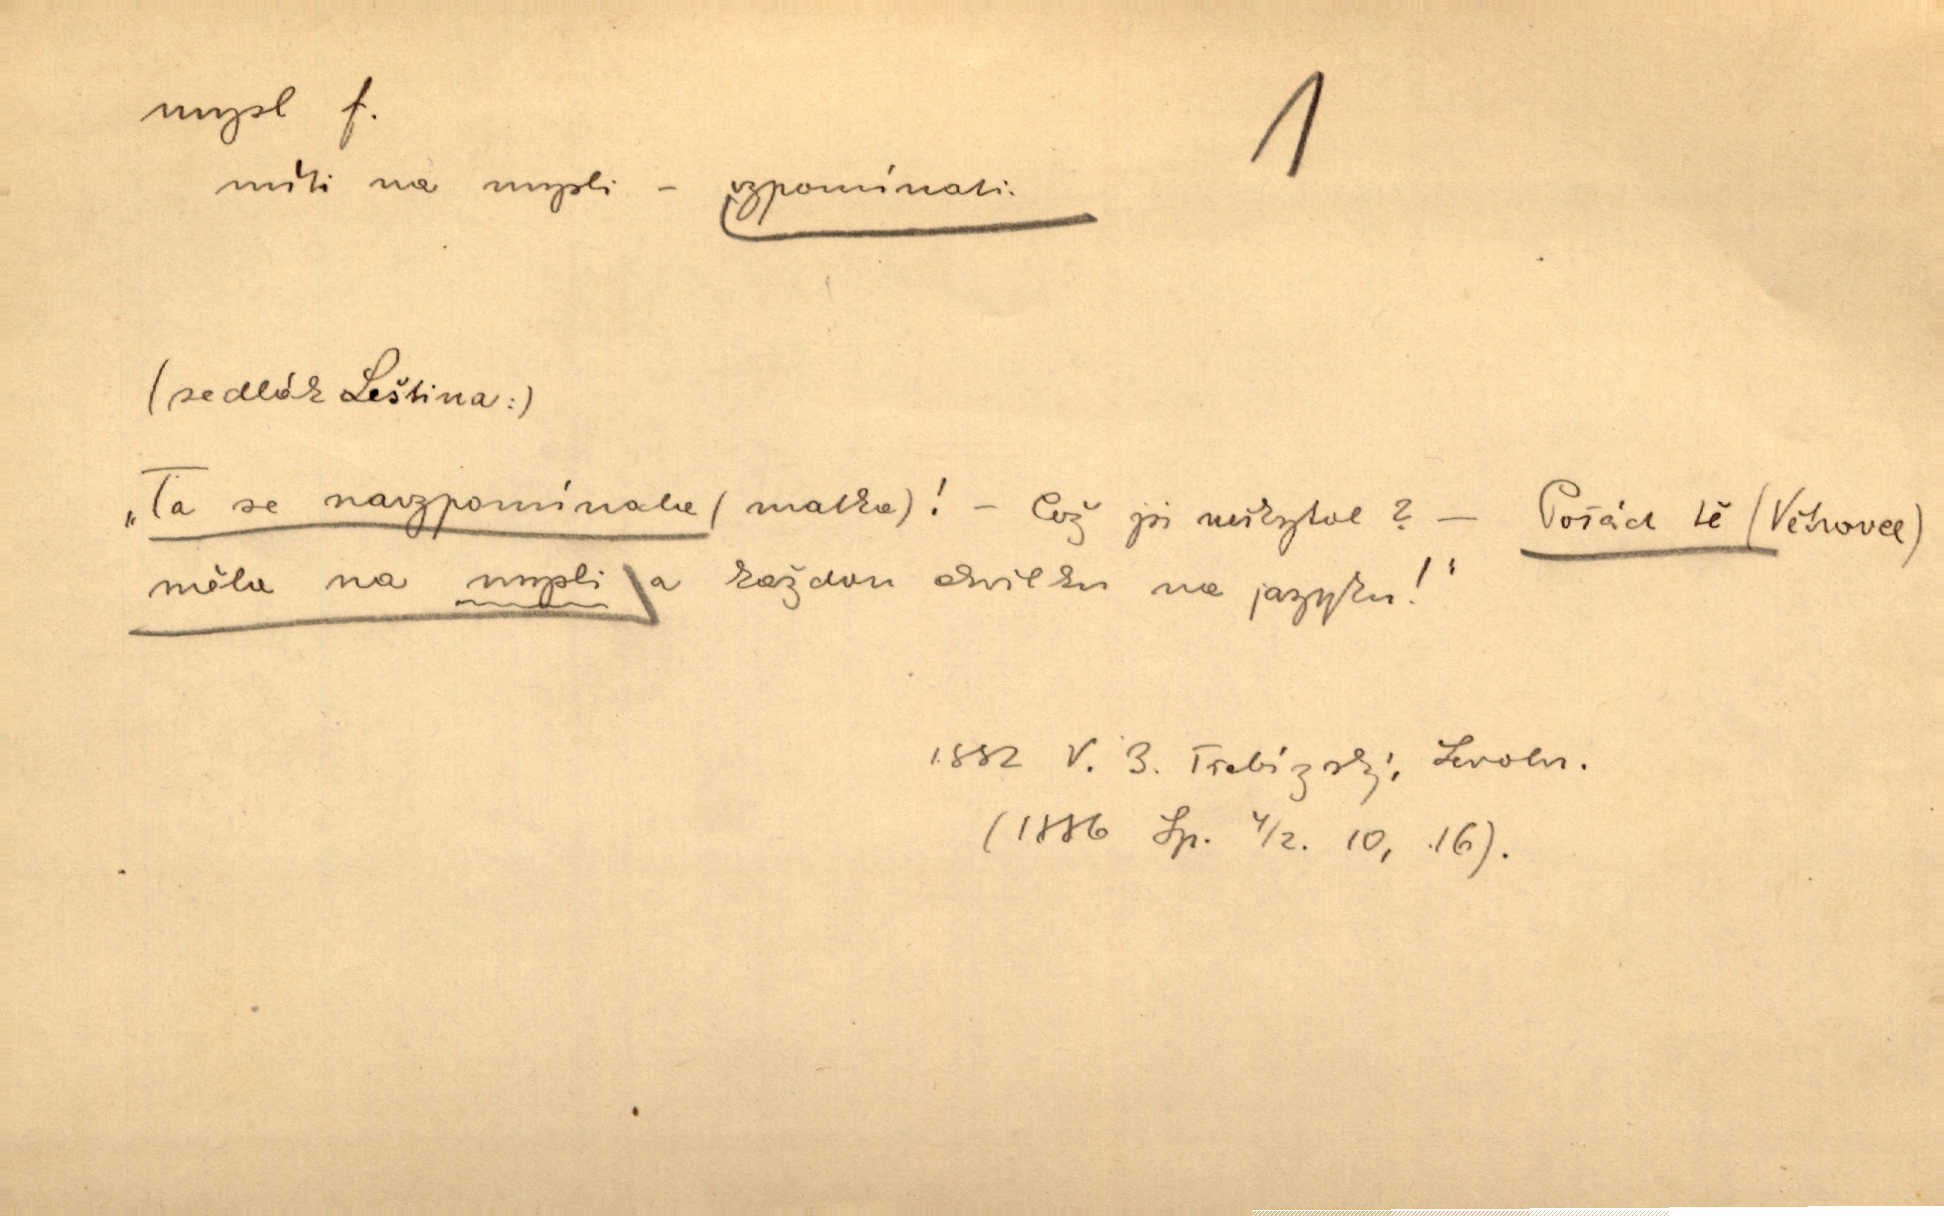 mysl f.
1
míti na mysli – vzpomínati.
(sedlák Leština:)
„Ta se navzpomínala (matka)! – Což jsi neškytal? – Pořád tě (Větrovce)
měla na mysli a každou chvilku na jazyku!"
1882 V. B. Třebízský, Levoh.
(1886 Sp. 4/2. 10, 16).